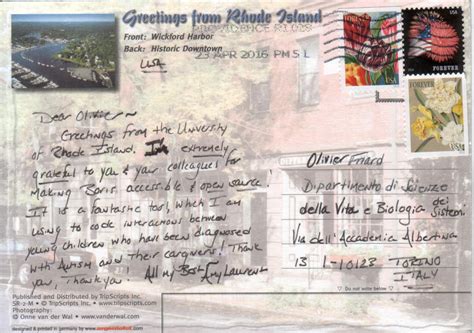 Greetings from Rhode Island
Front: Wickford Harbor
Back: Historic Downtown
USA
PROVIDENCE RI 028
23 APR 2016 PM 5 L
FOREVER
FOREVER
Dear Olivier ~
Greetings from the University
of Rhode Island. I'm extremely
grateful to you & your colleagues for
making Boris accessible & open source!
It is a fantastic tool which I am
using to code interactions between
young children who have been diagnosed
with Autism and their caregivers! Thank
you, thank you! All my Best, Amy Laurent
Olivier Friard
Dipartimento di Scienze
della Vita e Biologia dei Sistemi
Via dell'Accademia Albertina
13 I-10123 TORINO
ITALY
Published and Distributed by TripScripts Inc.
SR-2-M • © TripScripts Inc. • www.tripscripts.com
Photography:
© Onne van der Wal • www.vanderwal.com
designed & printed in germany by
Do not write below line.